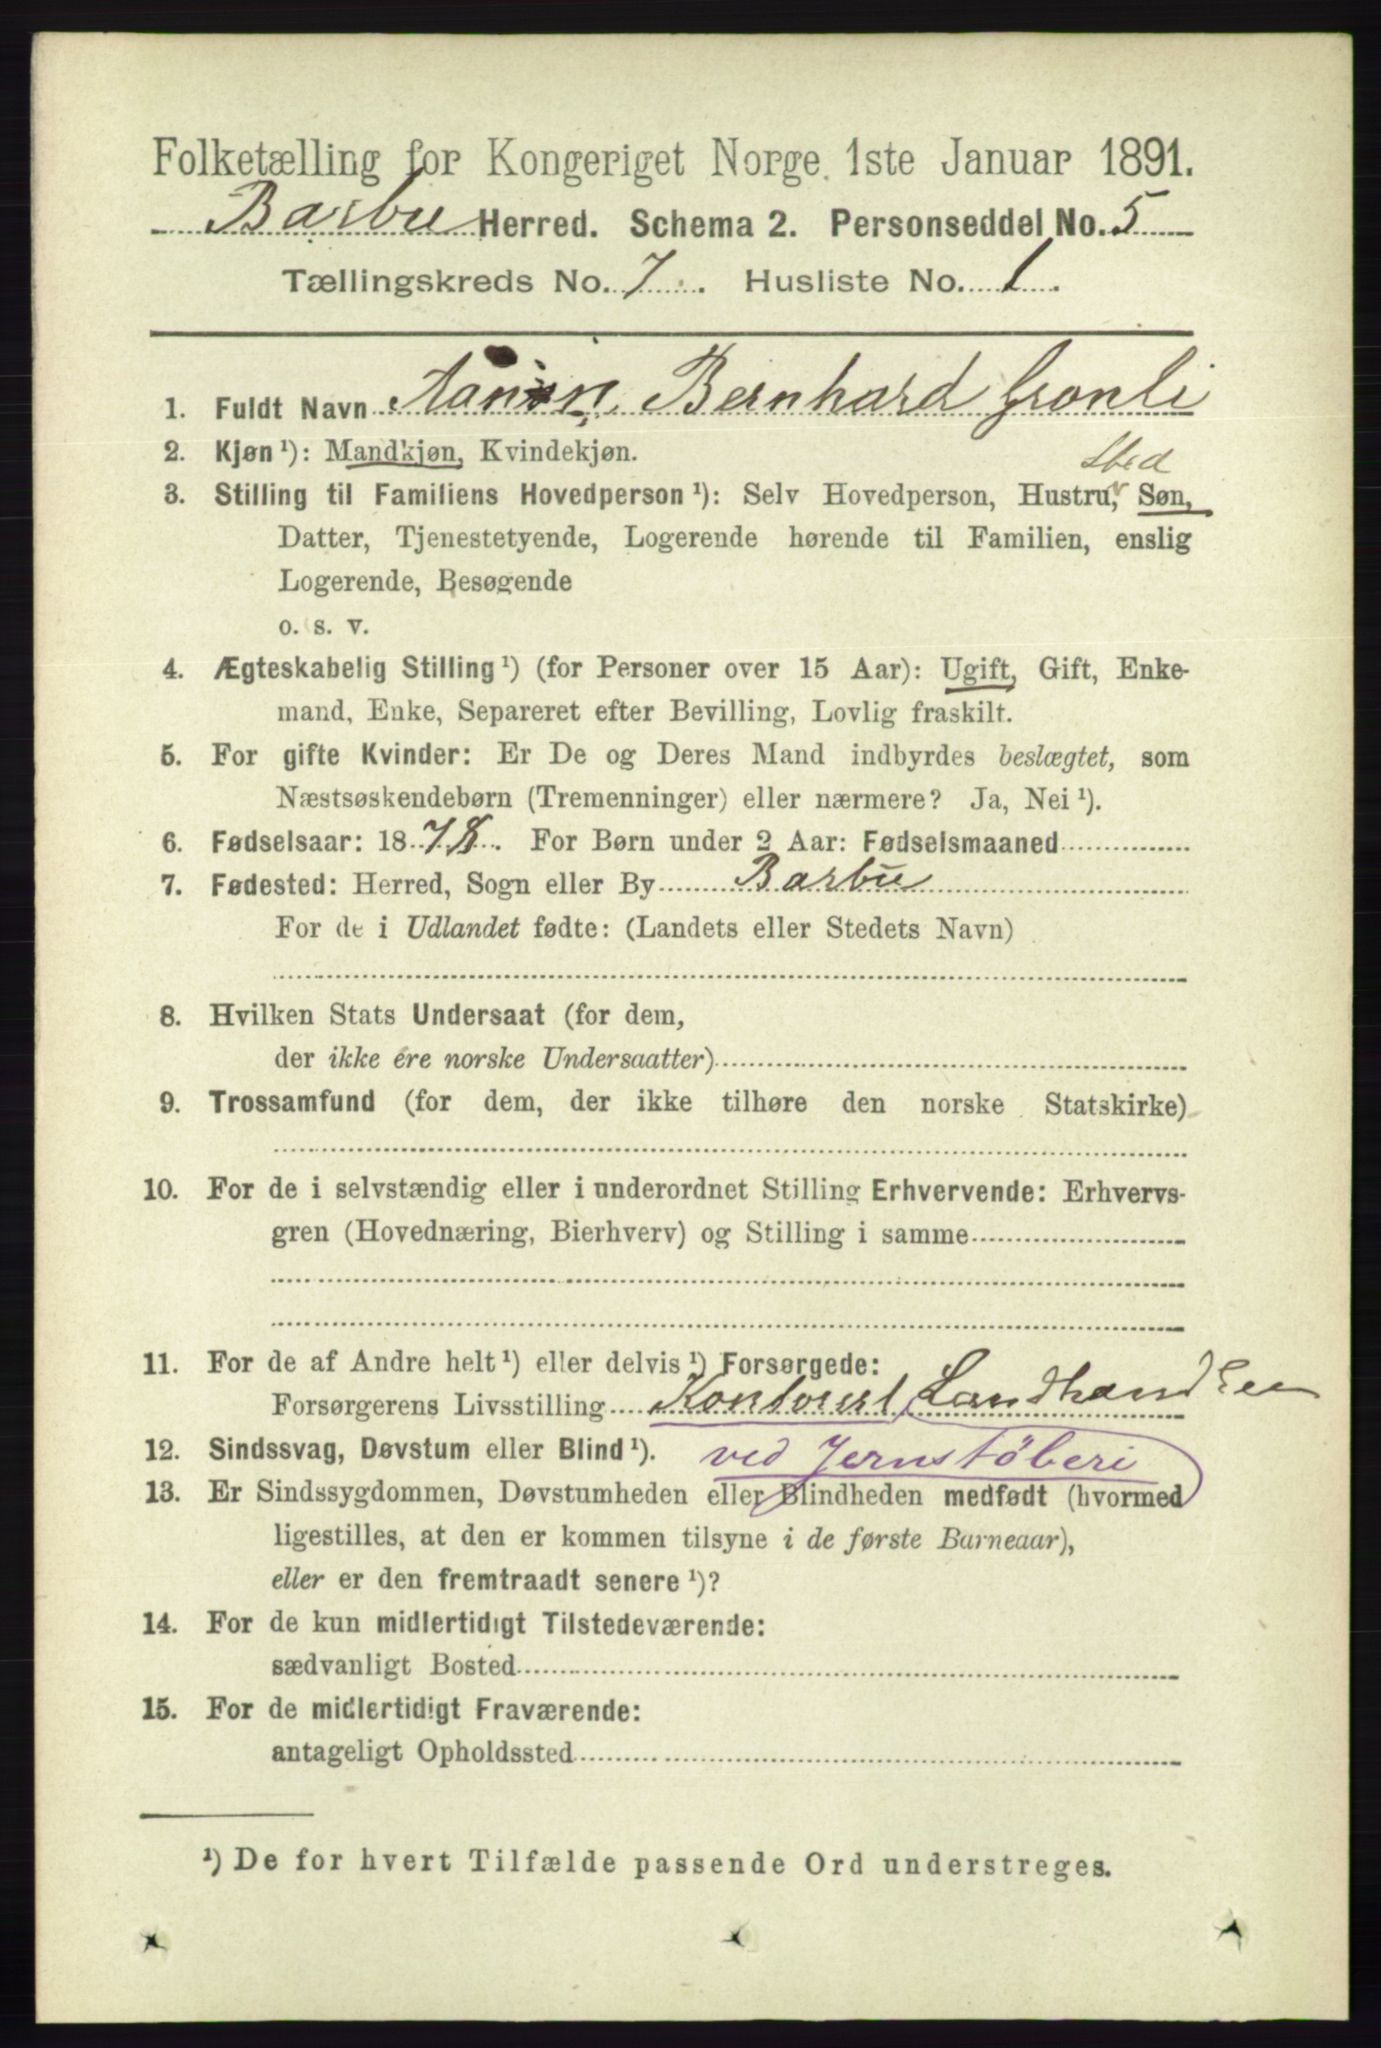 Folketælling for Kongeriget Norge 1ste Januar 1891.
Barbu Herred. Schema 2. Personseddel No. 5
Tællingskreds No. 7. Husliste No. 1.
1. Fuldt Navn Aanon Bernhard Gronli
2. Kjøn ¹): Mandkjøn, Kvindekjøn.
Sted
3. Stilling til Familiens Hovedperson ¹): Selv Hovedperson, Hustru, Søn,
Datter, Tjenestetyende, Logerende hørende til Familien, enslig
Logerende, Besøgende
o. s. v.
4. Ægteskabelig Stilling ¹) (for Personer over 15 Aar): Ugift, Gift, Enke-
mand, Enke, Separeret efter Bevilling, Lovlig fraskilt.
5. For gifte Kvinder: Er De og Deres Mand indbyrdes beslægtet, som
Næstsøskendebørn (Tremenninger) eller nærmere? Ja, Nei ¹).
6. Fødselsaar: 1878. For Børn under 2 Aar: Fødselsmaaned
7. Fødested: Herred, Sogn eller By Barbu
For de i Udlandet fødte: (Landets eller Stedets Navn)
8. Hvilken Stats Undersaat (for dem,
der ikke ere norske Undersaatter)
9. Trossamfund (for dem, der ikke tilhøre den norske Statskirke)
10. For de i selvstændig eller i underordnet Stilling Erhvervende: Erhvervs-
gren (Hovednæring, Bierhverv) og Stilling i samme
11. For de af Andre helt ¹) eller delvis ¹) Forsørgede:
Forsørgerens Livsstilling Kontorist, Landhandleri
12. Sindssvag, Døvstum eller Blind ¹). ved Jernstöberi
13. Er Sindssygdommen, Døvstumheden eller Blindheden medfødt (hvormed
ligestilles, at den er kommen tilsyne i de første Barneaar),
eller er den fremtraadt senere ¹)?
14. For de kun midlertidigt Tilstedeværende:
sædvanligt Bosted
15. For de midlertidigt Fraværende:
antageligt Opholdssted
¹) De for hvert Tilfælde passende Ord understreges.